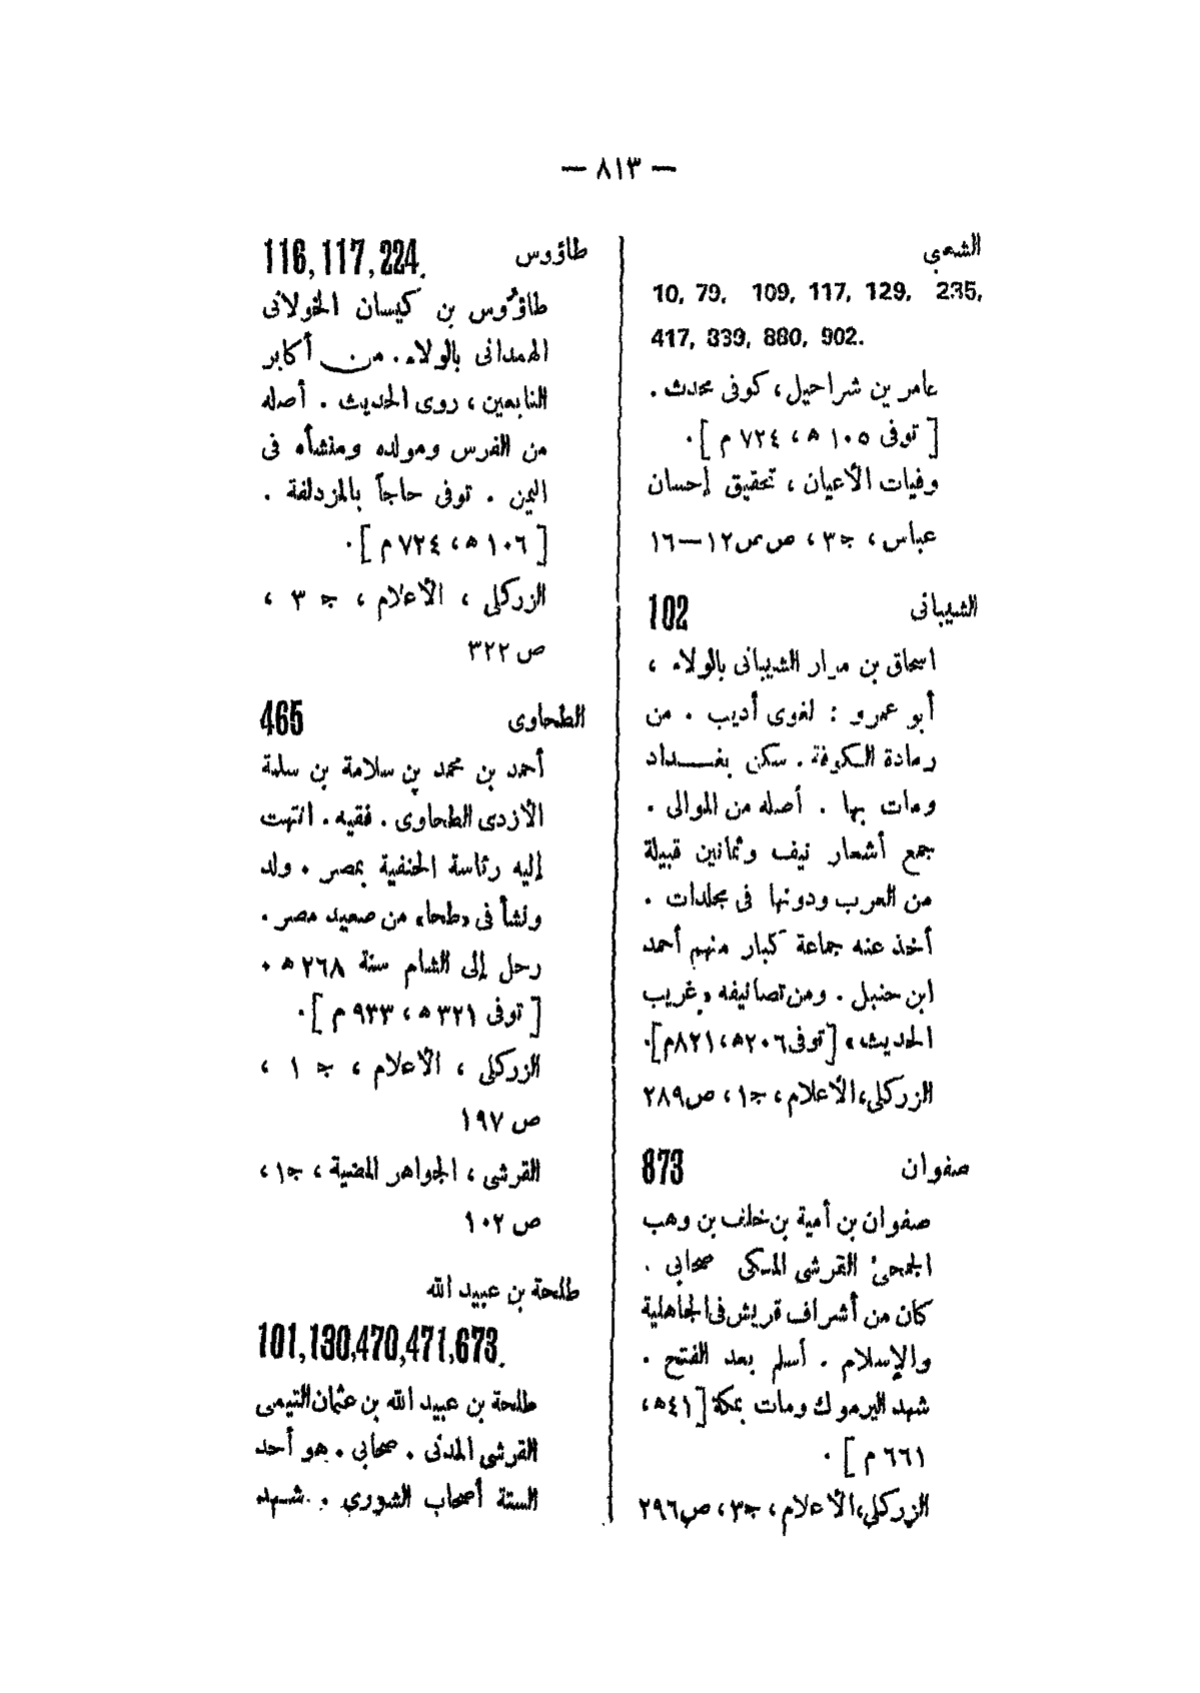 — ٨١٣ —
الشعبي
10, 79, 109, 117, 129, 235,
417, 839, 880, 902.
عامر بن شراحيل، كوفى محدث .
[ توفى ١٠٥ ه ، ٧٢٤ م ] .
وفيات الأعيان ، تحقيق إحسان
عباس ، ج٣ ، ص ص ١٢—١٦
الشيبانى 102
اسحاق بن مرار الشيبانى بالولاء ،
أبو عمرو : لغوى أديب . من
رمادة الكوفة . سكن بغــداد
ومات بها . أصله من الموالى .
جمع أشعار نيف وثمانين قبيلة
من العرب ودونها فى مجلدات .
أخذ عنه جماعة كبار منهم أحمد
ابن حنبل . ومن تصانيفه « غريب
الحديث » [توفى ٢٠٦ه ، ٨٢١م].
الزركلى، الأعلام ، ج١ ، ص٢٨٩
صفوان 873
صفوان بن أمية بن خلف بن وهب
الجمحى القرشى المكى صحابى .
كان من أشراف قريش فى الجاهلية
والإسلام . أسلم بعد الفتح .
شهد اليرموك ومات بمكة [٤١ه ،
٦٦١ م ] .
الزركلى، الأعلام ، ج٣ ، ص٢٩٦
طاؤوس 116, 117, 224.
طاؤوس بن كيسان الخولانى
الهمدانى بالولاء . من أكابر
التابعين ، روى الحديث . أصله
من الفرس ومولده ومنشأه فى
اليمن . توفى حاجاً بالمزدلفة .
[ ١٠٦ ه ، ٧٢٤ م ] .
الزركلى ، الأعلام ، ج ٣ ،
ص ٣٢٢
الطحاوى 465
أحمد بن محمد بن سلامة بن سلمة
الأزدى الطحاوى . فقيه . انتهت
إليه رئاسة الحنفية بمصر . ولد
ونشأ فى «طحا» من صعيد مصر .
رحل إلى الشام سنة ٢٦٨ ه .
[ توفى ٣٢١ ه ، ٩٣٣ م ] .
الزركلى ، الأعلام ، ج ١ ،
ص ١٩٧
القرشى ، الجواهر المضية ، ج١ ،
ص ١٠٢
طلحة بن عبيد الله
101,130,470,471,673.
طلحة بن عبيد الله بن عثمان التيمى
القرشى المدنى . صحابى . هو أحد
الستة أصحاب الشورى . شــهد